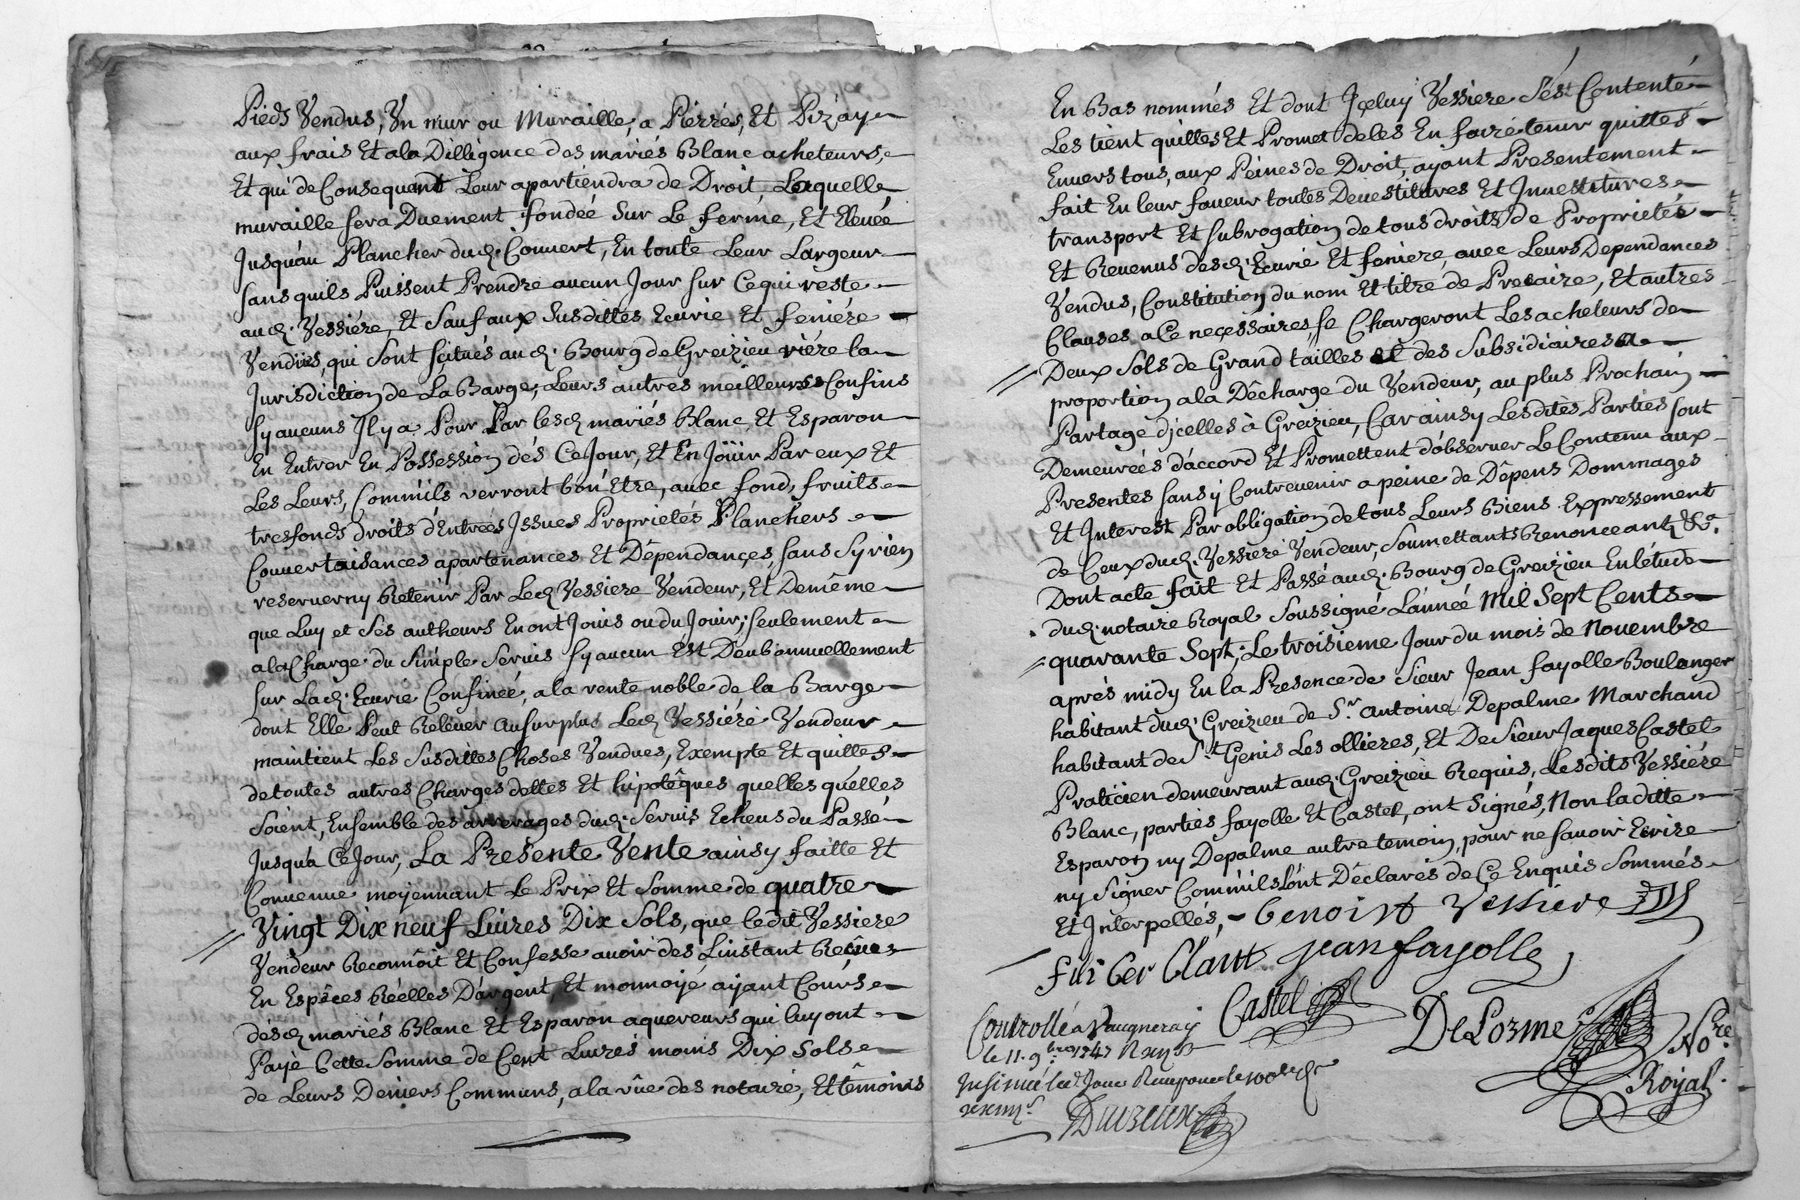 Pieds Vendus, Vn mur ou Muraille, a Pierres, Et Pizay
aux frais Et ala Dilligence des mariés Blanc acheteurs,
Et qui de Consequent Leur apartiendra de Droit Laquelle
muraille sera Duement fondéé Sur Le ferme, Et Elevéé
Jusqu'au Plancher dud. Couvert, En toute Leur Largeur
sans quils Puissent Prendre aucun Jour sur Ce qui reste
aud. Vessiére, Et Sauf aux Susdittes Ecurie Et feniére
Vendües, qui Sont scitués aud. Bourg de Greizieu riére la
Jurisdiction de La Barge; Leurs autres meilleurs Confins
sy aucuns Jl y a Pour Par lesd mariés Blanc, Et Esparon
En Entrer En Possession dés Ce Jour, Et En Joüir Par eux Et
Les Leurs, Comm'ils verront bon Etre, avec fond, fruits
tresfonds Droits d'Entrées Jssues Proprietés Planchers
Couvert aisances apartenances Et Dépendances, sans Sy rien
reserver ny Retenir Par Led Vessiere Vendeur, Et De même
que Luy et Ses autheurs En ont Jouis ou du Jouir, seulement
a la Charge du Simple Servis sy aucun Est Deub annuellement
sur Lad. Ecurie Confinéé, a la rente noble de la Barge
dont Elle Peut Relever Au surplus Led Vessiére Vendeur
maintient Les Susdittes Choses Vendues, Exempte Et quittes
de toutes autres Charges dettes Et hipotêques quelles quelles
Soient, Ensemble des arrerages dud. Servis Echeus du Passé
Jusqu'a Ce Jour, La Presente Vente ainsy faitte Et
Convenue moyennant Le Prix Et Somme de quatre
Vingt Dix neuf Livres Dix Sols, que ledit Vessiere
Vendeur Reconnoit Et Confesse avoir des L'instant Reçües
En Espéces Réelles D'argent Et monnoyé ayant Cours
désd mariés Blanc Et Esparon aquereurs qui luy ont
Payé Cette Somme de Cent Livres moins Dix Sols
de Leurs Deniers Communs, a la vûe des notaire, Et têmoins
En Bas nommés Et dont Jceluy Vessiere S'est Contenté
Les tient quittes Et Promet de les En faire tenir quittes
Envers tous, aux Peines de Droit, ayant Presentement
fait En leur faveur toutes Devestitures Et Jnvestitures
transport Et subrogation de tous droits de Proprietés
Et Revenus desd. Ecurie Et feniere, avec Leurs Dependances
Vendus, Constitution du nom Et titre de Precaire, Et autres
Clauses a Ce neçessaires, se Chargeront Les acheteurs de
Deux Sols de Grand tailles et des Subsidiaires a
proportion a la Décharge du Vendeur, au plus Prochain
Partage d'jcelles à Greizieu, Car ainsy Lesdites Parties sont
Demeurées d'accord Et Promettent d'observer Le Contenu aux
Presentes sans y Contrevenir a peine de Dépens Dommages
Et Interest Par obligation de tous Leurs Biens Expressement
de Ceux dud. Vessiere Vendeur, Soumettants Renonceant &a.
Dont acte fait Et Passé aud. Bourg de Greizieu En l'étude
dud. notaire Royal Soussigné L'année Mil Sept Cents
quarante Sept, Le troisieme Jour du mois de Novembre
aprés midy En la Presence de Sieur Jean fayolle Boulanger
habitant dud. Greizieu de Sr. Antoine Depalme Marchand
habitant de St Genis Les ollieres, Et De Sieur Jaques Castel
Praticien demeurant aud. Greizieu Requis, Lesdits Vessiére
Blanc, parties fayolle Et Castel, ont Signés, Non laditte
Esparon ny Depalme autre temoin, pour ne savoir Ecrire
ny Signer Comm'ils l'ont Déclarés de Ce Enquis Sommés
Et Interpellés,
benoist Vessiere
jean fayolle
Castel
DeLorme
Nore.
Royal.
Controllé a Vaugneray
le 11. 9bre 1747